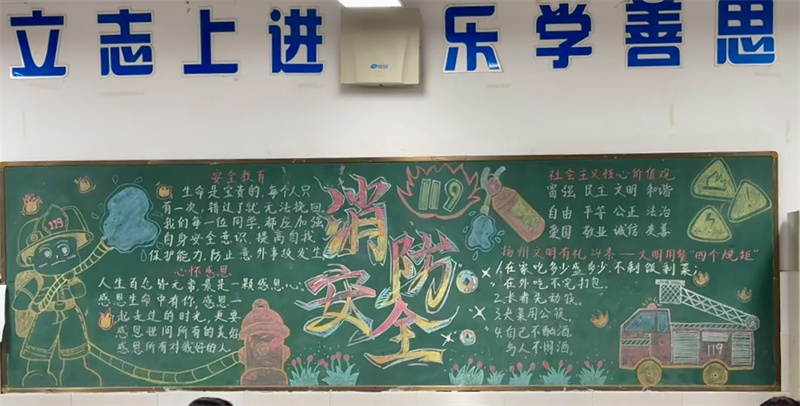 立志上进 乐学善思
安全教育
生命是宝贵的,每个人只
有一次,错过了就无法挽回,
我们每一位同学,都应加强
自身安全意识,提高自我
保护能力,防止意外事故发生
心怀感恩
人生百态皆无常,最是一颗感恩心。
感恩生命中有你,感恩一
起走过的时光,更要
感恩世间所有的美好
感恩所有对我好的人。
119
消防安全
119
社会主义核心价值观
富强 民主 文明 和谐
自由 平等 公正 法治
爱国 敬业 诚信 友善
扬州文明有礼 — 文明用餐"四个规矩"
1.在家吃多少盛多少,不剩饭剩菜;
在外吃不完打包.
2.长者先动筷。
3.夹菜用公筷。
4.自己不酗酒。
与人不闹酒。
119